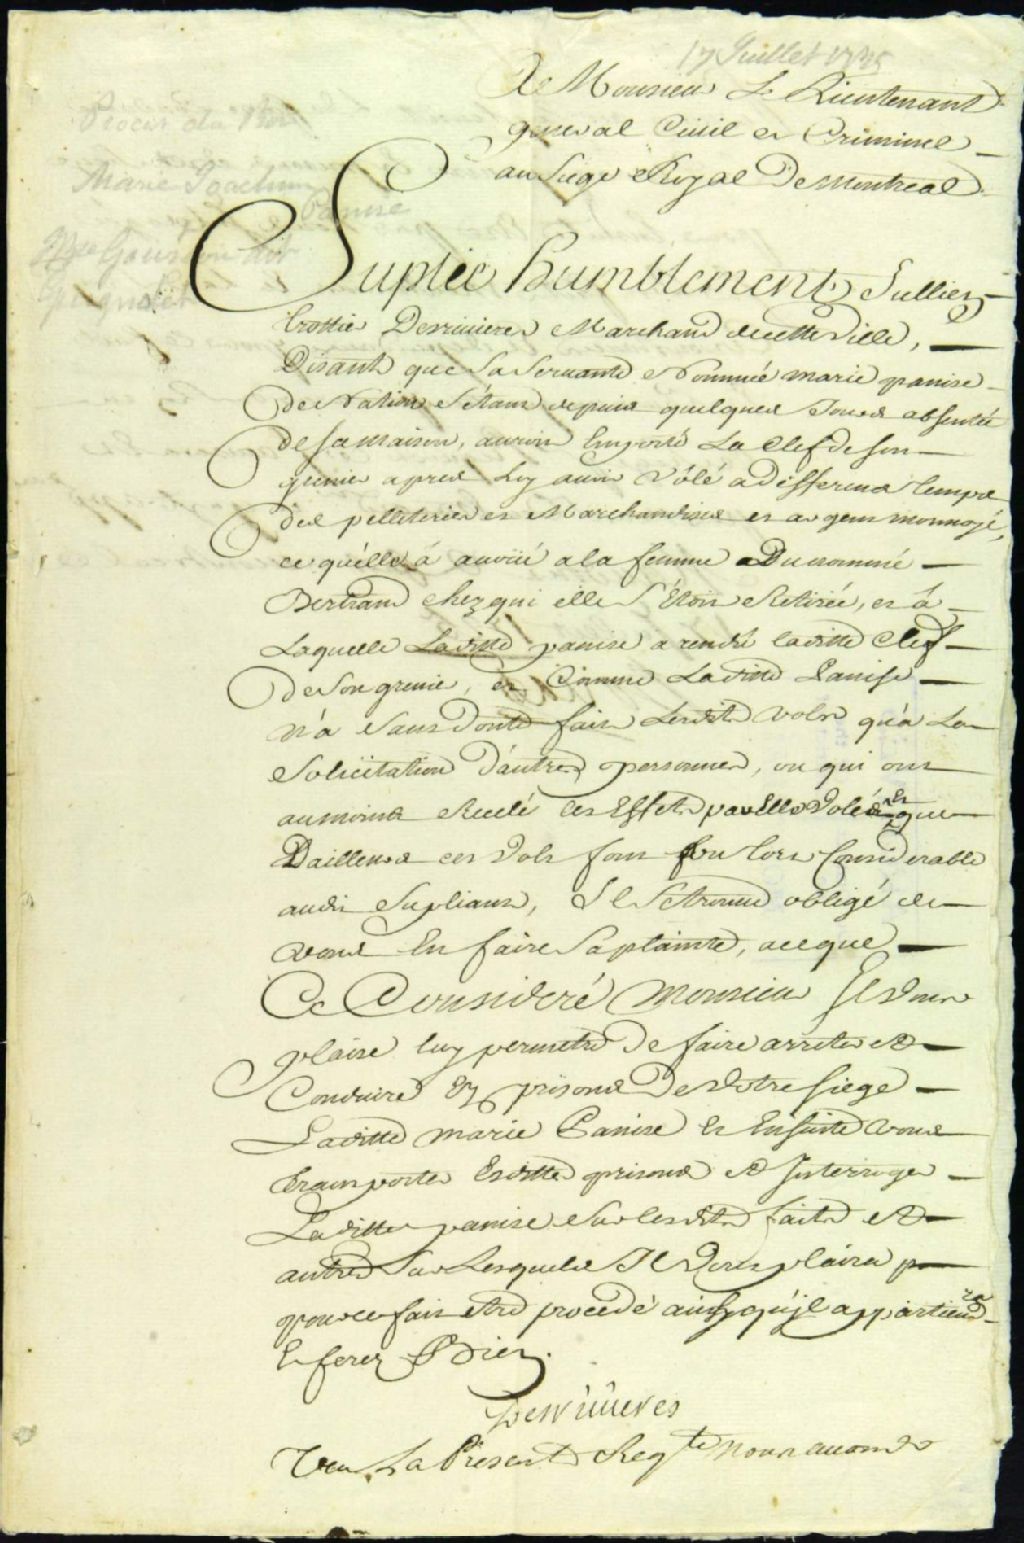 17 Juillet 1735
A Monsieur Le Lieutenant
general Civil et Criminel
au siege Royal De Montreal
Procur du Roi
Marie Joachim
Panise
Guignolet
Suplie humblement Jullien
trottier Desrivieres Marchand de cette Ville,
Disant que Sa Servante Nommée marie panise
De Nation S'étant depuis quelques Jours absentée
de sa maison, auroit Emporté La Clef de son
grenier apres Luy avoir Vôlé a differens temps
des pelleteries et Marchandises et argent monnoyé,
ce qu'elle à avoüé a la femme Du nommé
Bertrand chez qui elle S'Etoit Retirée, et à
Laquelle Laditte panise a rendu laditte Clef
de Son grenier, et Comme Laditte Panise
n'a Sans Doute fait Lesdits Vols qu'a La
Solicitation d'autres personnes, ou qui ont
au moins Recelé les Effets par Elle Volés et que
D'ailleurs ces Vols sont fort Considerable
audit Supliant, Il Se trouve obligé de
vous En faire Sa plainte, a ce que
Ce Consideré Monsieur Il Vous
plaise luy permettre De faire arreter et
Conduire Ez prisons De Votre siege
Laditte marie Panise et Ensuitte vous
transporter Esdittes prisons et Interroger
Laditte panise Sur lesdits faits et
autres Sur Lesquels Il Vous plaira p
pour ce fait etre procedé ainsy qu'il appartiendra
Et ferez Bien.
Desrivieres
Veu La Presente Reqte Nous avons